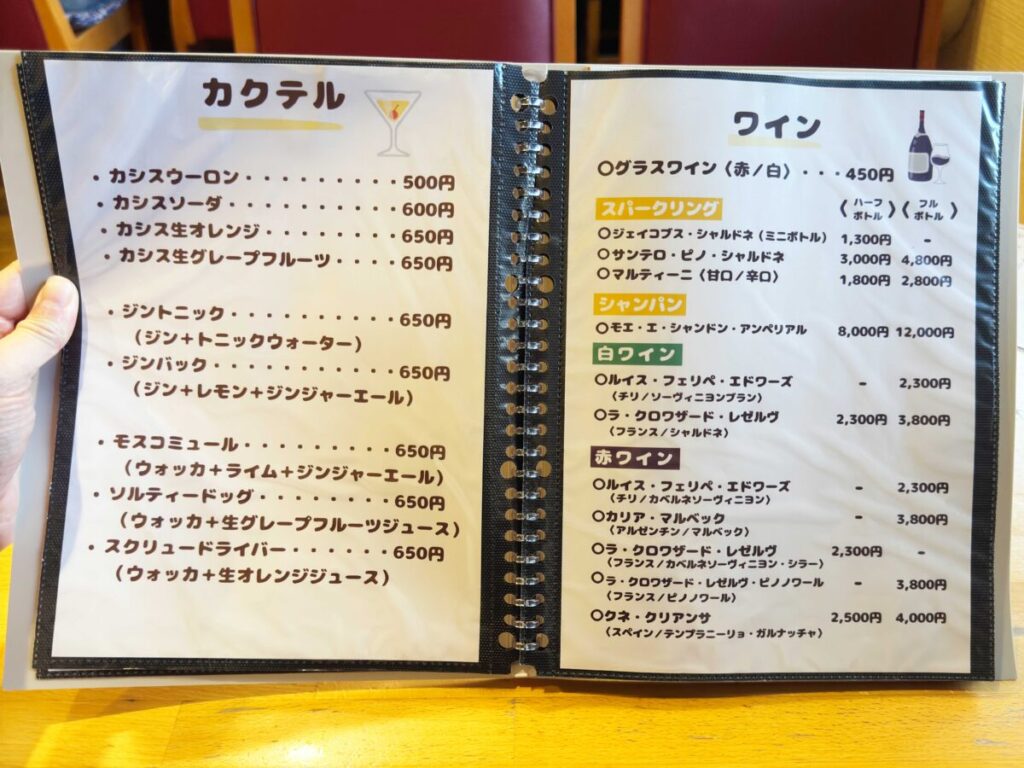 カクテル
・カシスウーロン・・・・・・・・・・500円
・カシスソーダ・・・・・・・・・・・600円
・カシス生オレンジ・・・・・・・・・650円
・カシス生グレープフルーツ・・・・・650円
・ジントニック・・・・・・・・・・・650円
(ジン+トニックウォーター)
・ジンバック・・・・・・・・・・・・650円
(ジン+レモン+ジンジャーエール)
・モスコミュール・・・・・・・・・・650円
(ウォッカ+ライム+ジンジャーエール)
・ソルティードッグ・・・・・・・・・650円
(ウォッカ+生グレープフルーツジュース)
・スクリュードライバー・・・・・・・650円
(ウォッカ+生オレンジジュース)
ワイン
○グラスワイン(赤/白)・・・450円
スパークリング 〈ハーフボトル〉〈フルボトル〉
○ジェイコブス・シャルドネ(ミニボトル) 1,300円 -
○サンテロ・ピノ・シャルドネ 3,000円 4,800円
○マルティーニ(甘口/辛口) 1,800円 2,800円
シャンパン
○モエ・エ・シャンドン・アンペリアル 8,000円 12,000円
白ワイン
○ルイス・フェリペ・エドワーズ - 2,300円
(チリ/ソーヴィニヨンブラン)
○ラ・クロワザード・レゼルヴ 2,300円 3,800円
(フランス/シャルドネ)
赤ワイン
○ルイス・フェリペ・エドワーズ - 2,300円
(チリ/カベルネソーヴィニヨン)
○カリア・マルベック - 3,800円
(アルゼンチン/マルベック)
○ラ・クロワザード・レゼルヴ 2,300円 -
(フランス/カベルネソーヴィニヨン・シラー)
○ラ・クロワザード・レゼルヴ・ピノノワール - 3,800円
(フランス/ピノノワール)
○クネ・クリアンサ 2,500円 4,000円
(スペイン/テンプラニーリョ・ガルナッチャ)